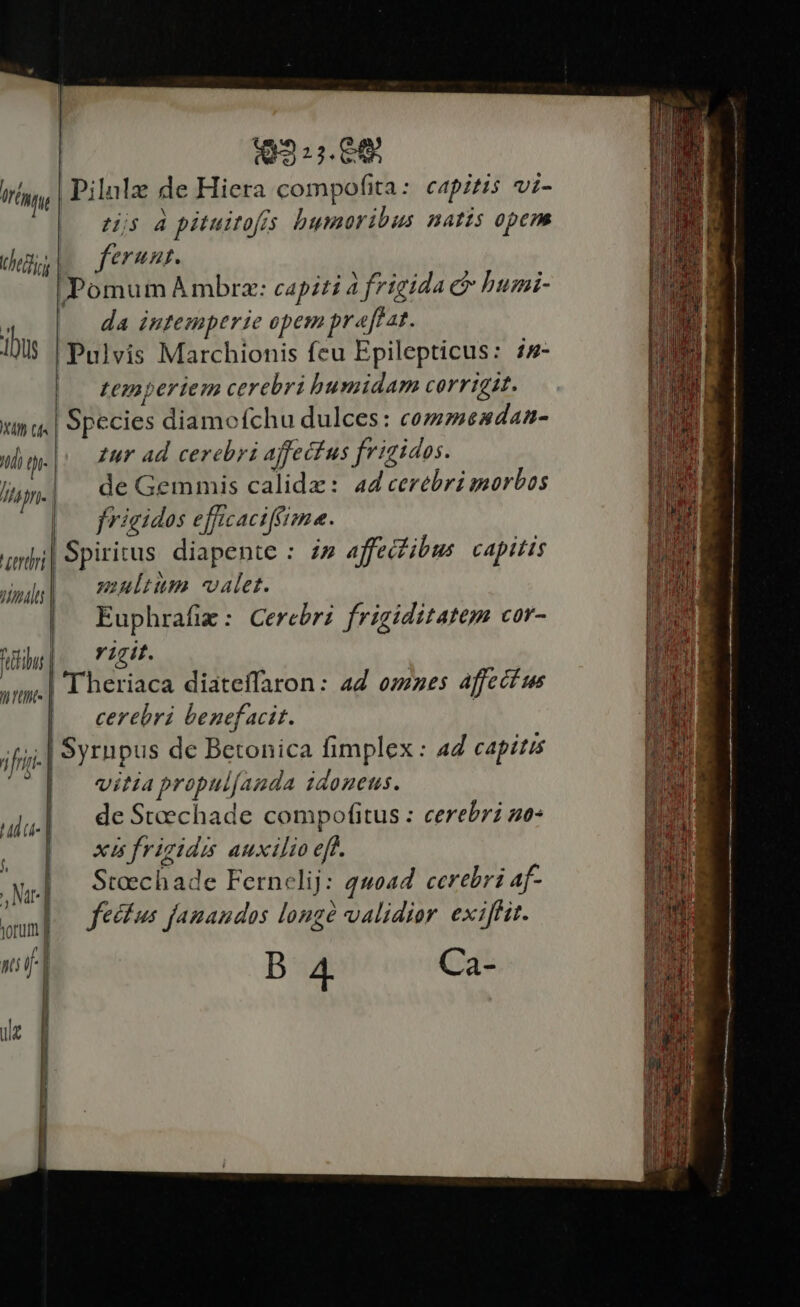 23.
Pilulæ de Hiera compoſita: capitis vi-
tijs à pituitoſis humoribus natis opem
ferunt.
Pomum Ambræ: capiti à frigida & humi-
da intemperie opem præſtat.
Pulvis Marchionis ſeu Epilepticus: in-
temperiem cerebri humidam corrigit.
Species diamoſchu dulces: commendan-
tur ad cerebri affectus frigidos.
de Gemmis calidæ: ad cerebri morbos
frigidos efficaciſſimæ.
Spiritus diapente: in affectibus capitis
multùm valet.
Euphraſiæ: Cerebri frigiditatem cor-
rigit.
Theriaca diateſſaron: ad omnes affectus
cerebri benefacit.
Syrupus de Betonica ſimplex: ad capitis
vitia propulſanda idoneus.
de Stœchade compoſitus: cerebri no-
xis frigidis auxilio eſt.
Stœchade Fernelij: quoad cerebri af-
fectus ſanandos longè validior exiſtit.
B 4 Ca-